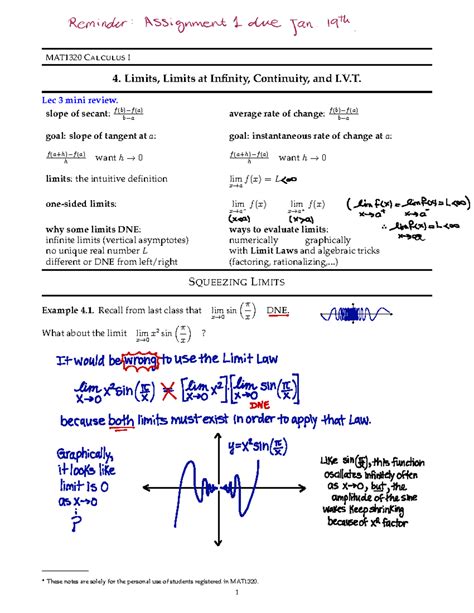 Reminder: Assignment 1 due Jan 19th.
MAT1320 CALCULUS I
4. Limits, Limits at Infinity, Continuity, and I.V.T.
Lec 3 mini review.
slope of secant: f(b)−f(a)/b−a average rate of change: f(b)−f(a)/b−a
goal: slope of tangent at a: goal: instantaneous rate of change at a:
f(a+h)−f(a)/h want h → 0 f(a+h)−f(a)/h want h → 0
limits: the intuitive definition lim x→a f(x) = L <∞
one-sided limits: lim x→a⁻ f(x) lim x→a⁺ f(x) (lim x→a⁺ f(x) = lim x→a⁻ f(x) = L <∞
(x<a) (x>a) ∴ lim x→a f(x) = L <∞)
why some limits DNE: ways to evaluate limits:
infinite limits (vertical asymptotes) numerically graphically
no unique real number L with Limit Laws and algebraic tricks
different or DNE from left/right (factoring, rationalizing,...)
SQUEEZING LIMITS
Example 4.1. Recall from last class that lim x→0 sin (π/x) DNE.
What about the limit lim x→0 x² sin (π/x) ?
It would be wrong to use the Limit Law
lim x→0 x² sin(π/x) = [lim x→0 x²]·[lim x→0 sin(π/x)]
DNE
because both limits must exist in order to apply that Law.
Graphically,
it looks like
limit is 0
as x→0
?
y=x²sin(π/x)
Like sin(π/x), this function
oscillates infinitely often
as x→0, but, the
amplitude of the sine
waves keep shrinking
because of x² factor
* These notes are solely for the personal use of students registered in MAT1320.
1